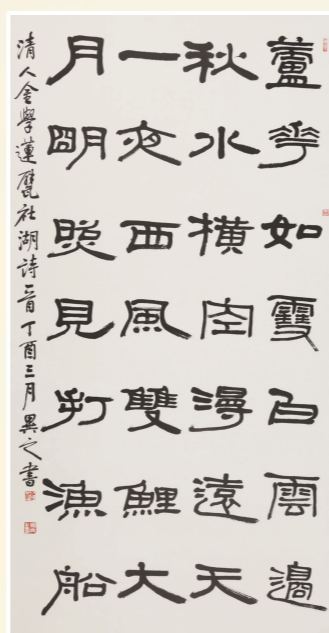 蘆華如雪白雲邊
秋水橫空浸遠天
一夜西風雙鯉大
月明照見打漁船
清人金學蓮甓社湖詩一首丁酉三月異之書